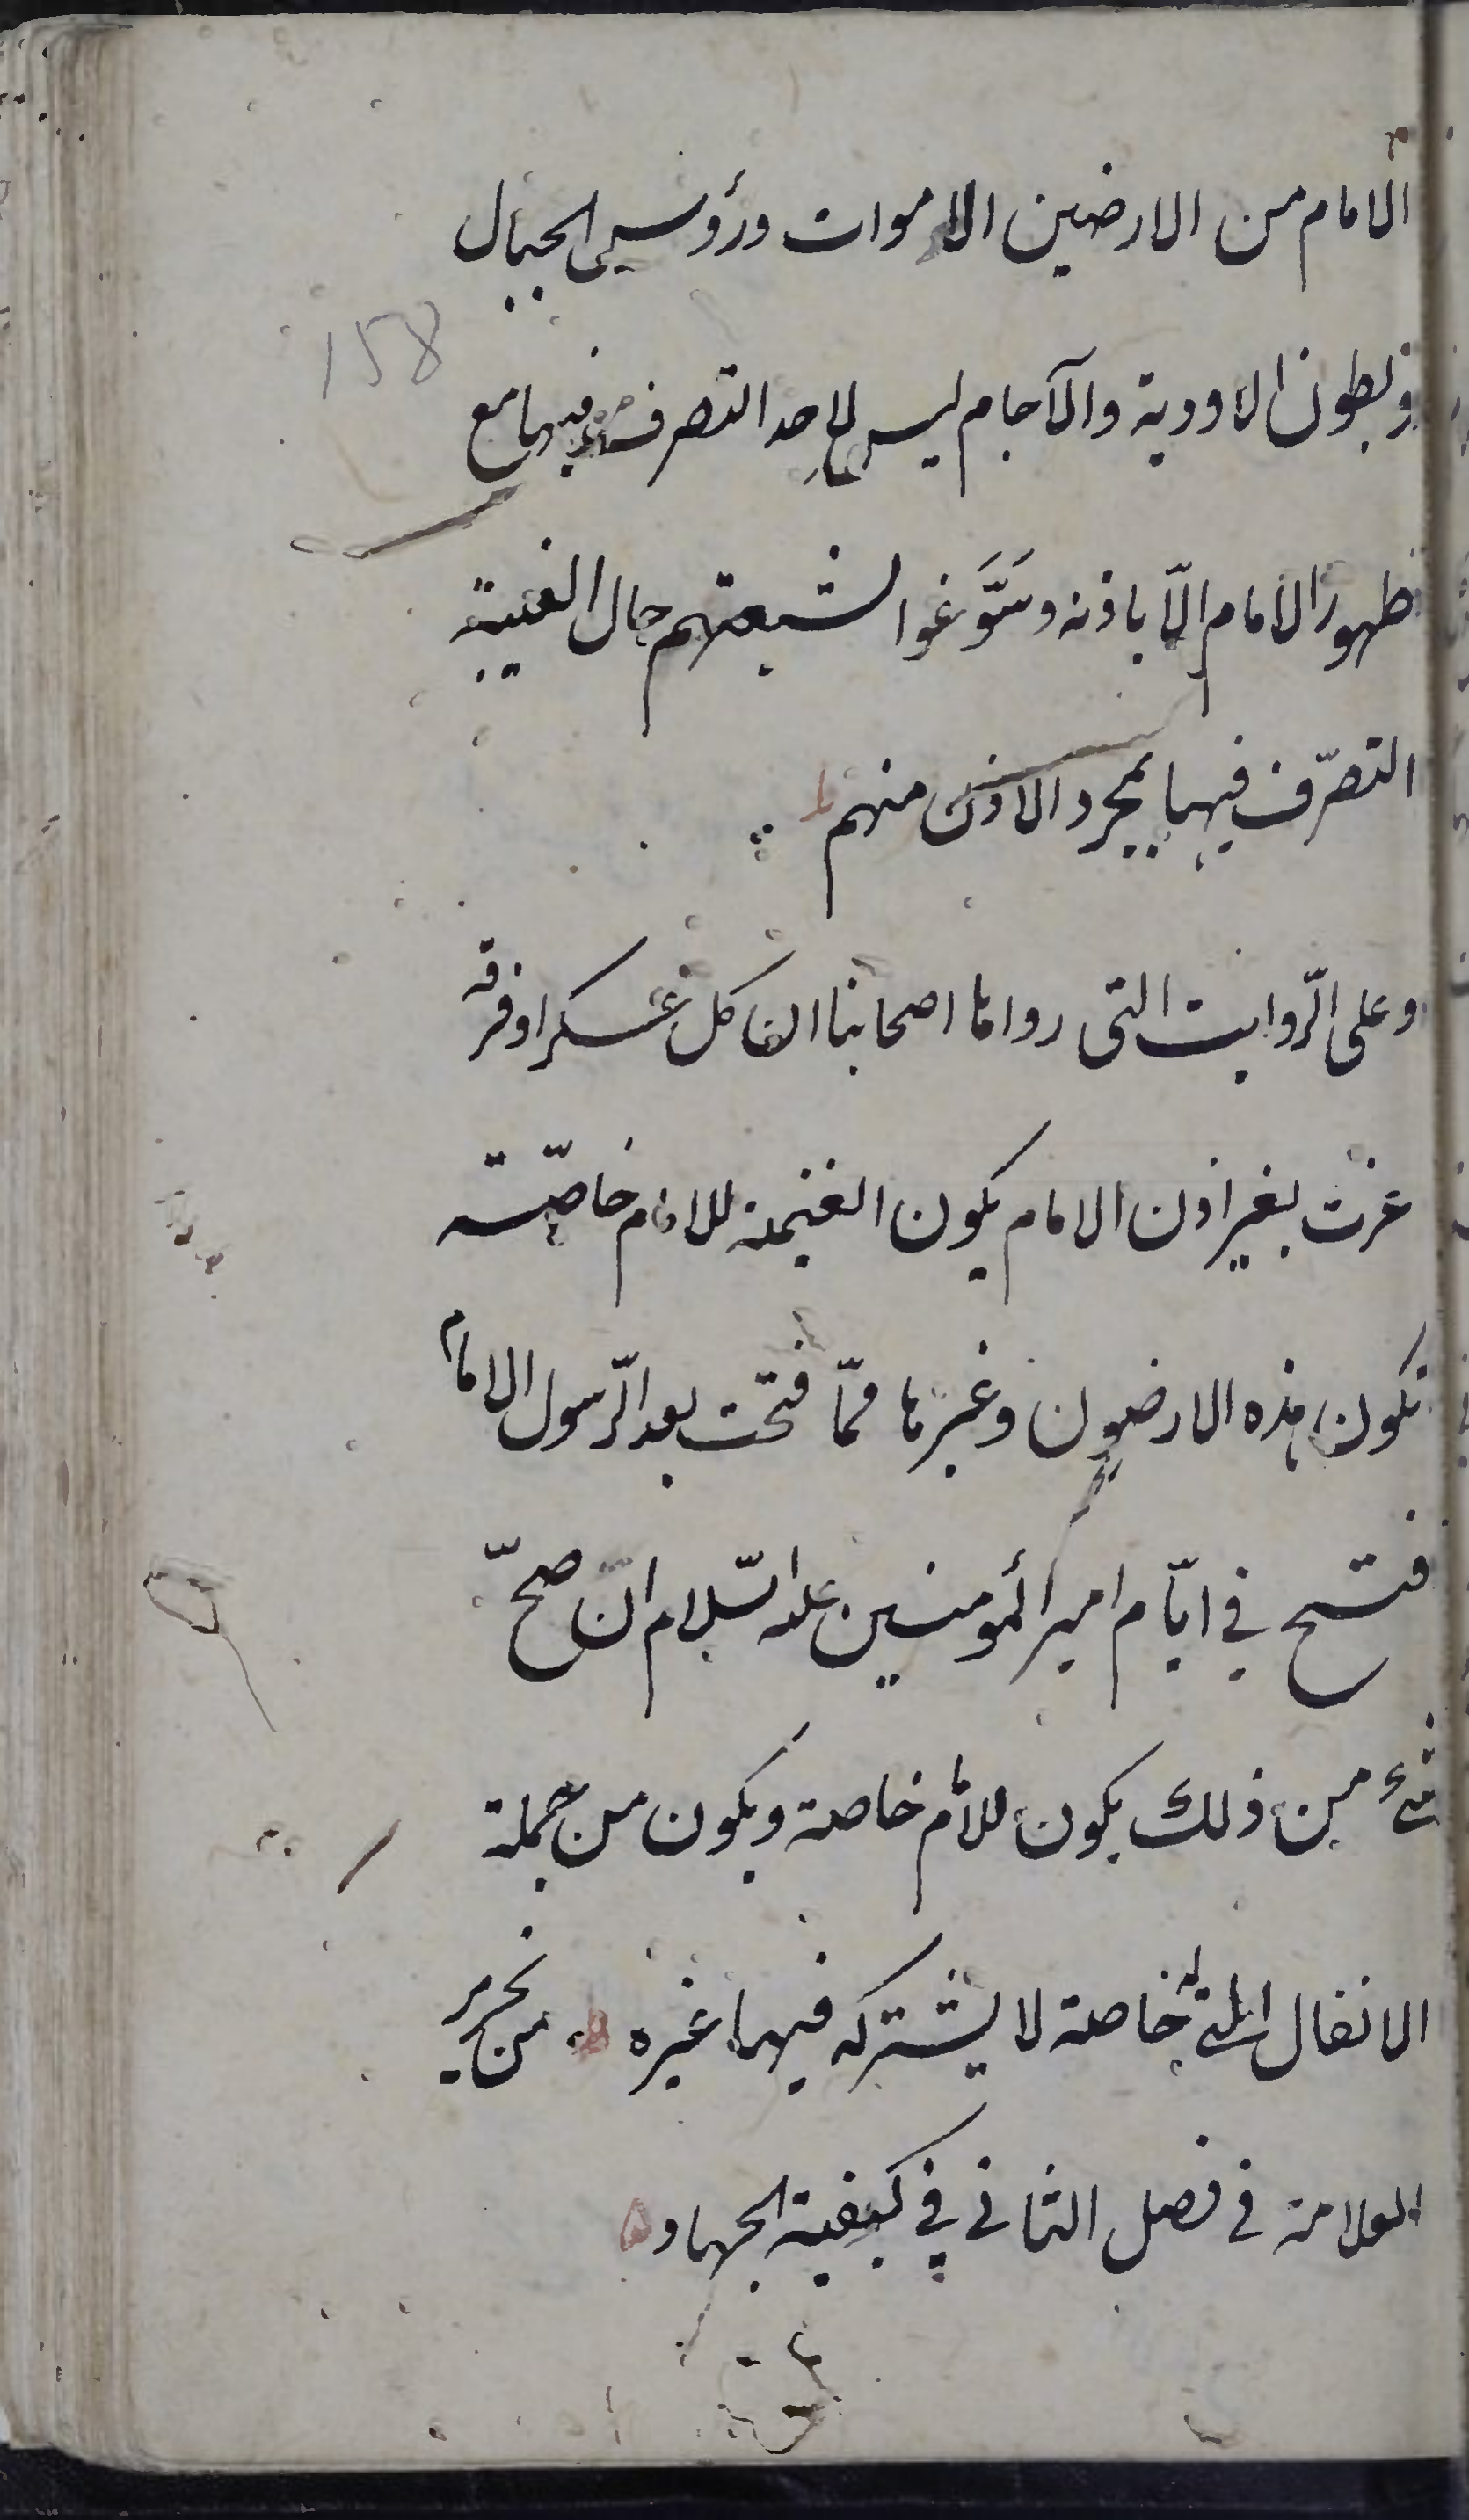 الامام من الارضين الاموات ورؤوس الجبال
158
وبطون الاودية والآجام ليس لاحد التصرف فيها مع
ظهور الامام الّا باذنه وسَوَّغوا لشيعتهم حال الغيبة
التصرّف فيها بمجرد الاذن منهم
وعلى الرّوايت التى رواها اصحابنا ان كل عسكر او فرقه
غزت بغير اذن الامام يكون الغنيمة للامام خاصّته
تكون هذه الارضون وغيرها ممّا فتحت بعد الرّسول الامام
فتح في ايّام امير المؤمنين عليه السّلام ان صحّ
شيء من ذلك يكون للامام خاصة ويكون من جملة
الانفال التي له خاصة لا يشتركه فيها غيره من تحرير
العلامة في فصل الثاني في كيفية الجهاد